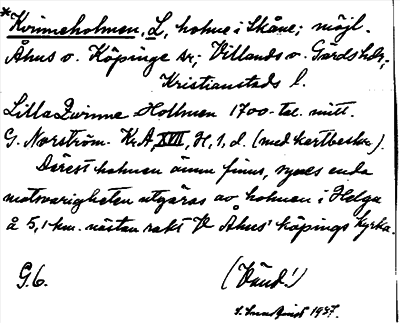 *Kvinneholmen, L, holme i Skåne; möjl.
Åhus o. Köpinge sr; Villands o. Gärds hdr,
Kristianstads l.
Lilla Qvinne Hollmen 1700-tal. mitt.
G. Norström. KrA, XVII, H, 1, d. (med kartbeskr.).
Därest holmen ännu finns, synes enda
motsvarigheten utgöras av holmen i Helge
å 5,1 km. nästan rakt V Åhus' köpings kyrka.
G.6. (Vänd!)
1937.